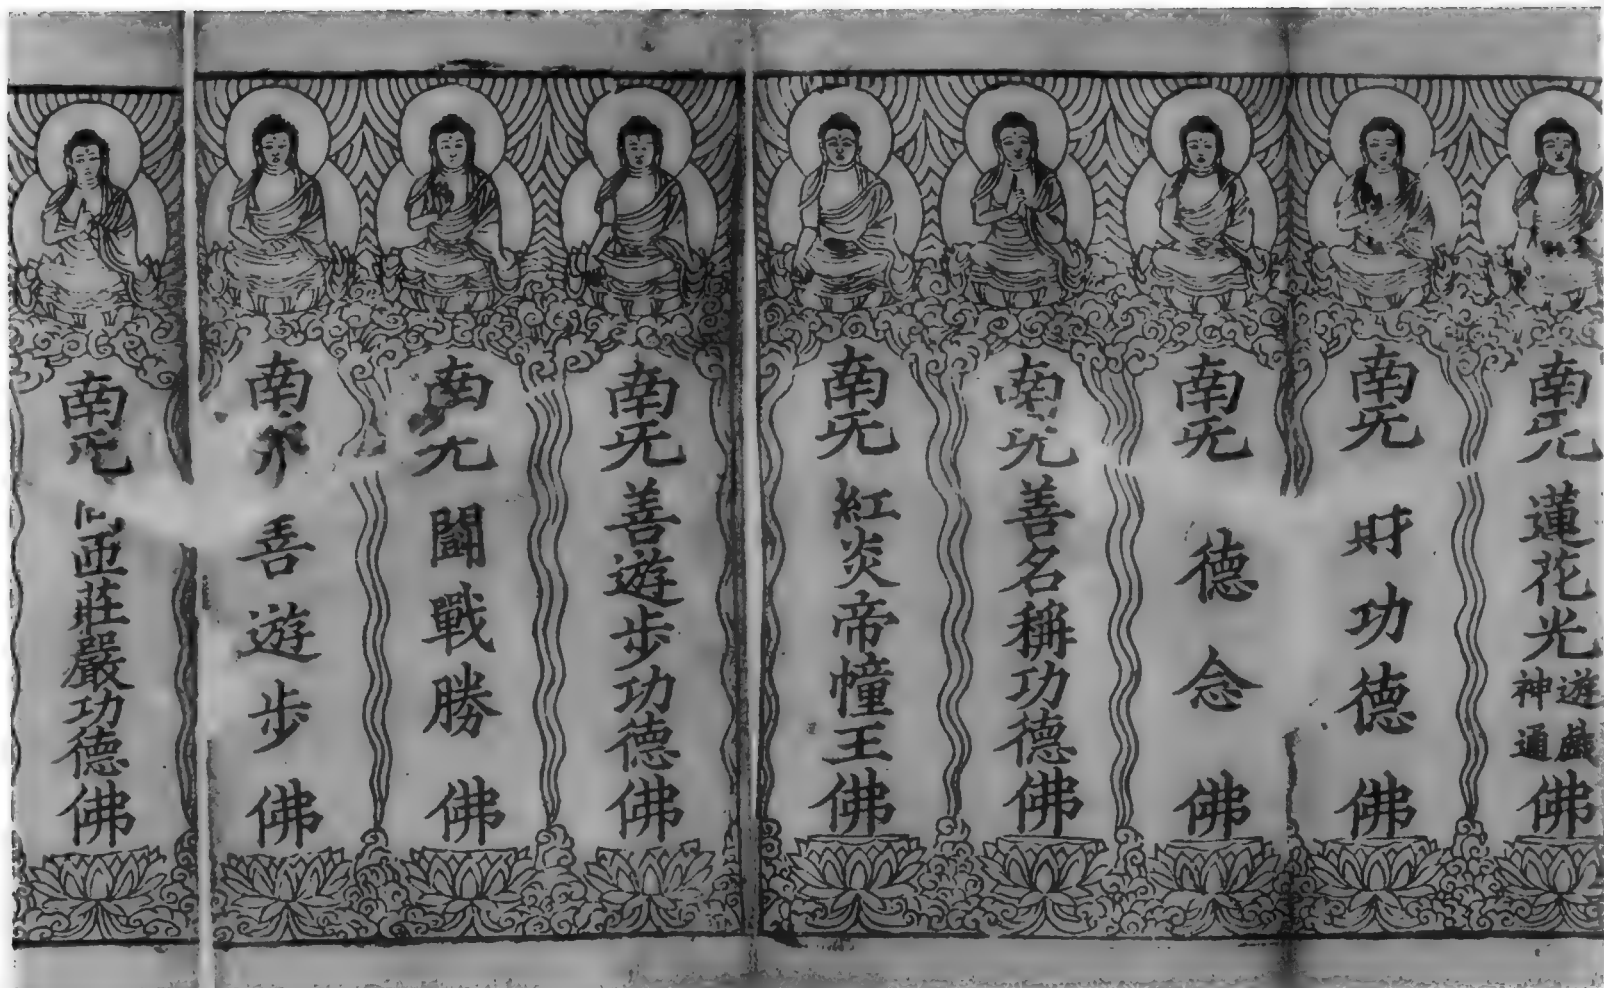 南无蓮花光遊戲神通佛
南无財功德佛
南无德念佛
南无善名稱功德佛
南无紅炎帝幢王佛
南无善遊步功德佛
南无鬪戰勝佛
南无善遊步佛
南无匝莊嚴功德佛